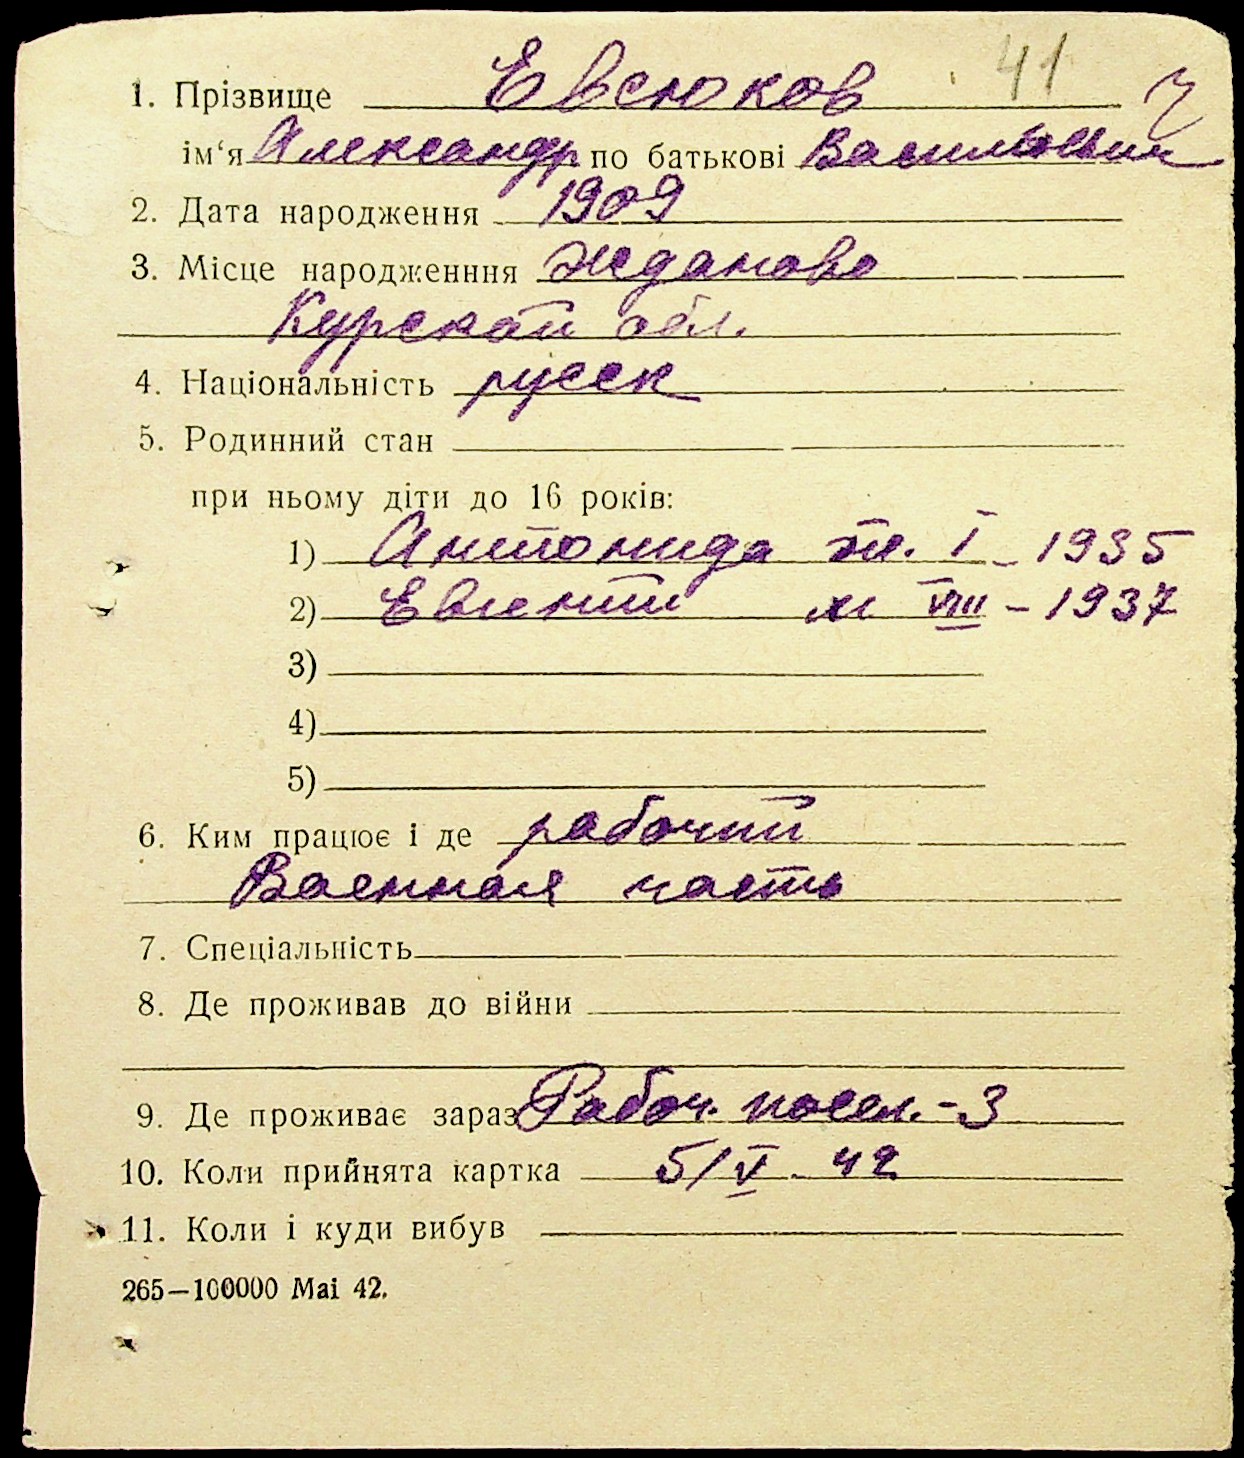 41
1. Прізвище Евсюков ч
ім‘я Александр по батькові Васильевич
2. Дата народження 1909
3. Місце народженння Жданово
Курской обл.
4. Національність русск
5. Родинний стан
при ньому діти до 16 років:
1) Антонида ж. I – 1935
2) Евгений м VIII – 1937
3)
4)
5)
6. Ким працює і де рабочий
Военная часть
7. Спеціальність
8. Де проживав до війни
9. Де проживає зараз Рабоч. посел.-3
10. Коли прийнята картка 5/V. 42
11. Коли і куди вибув
265—100000 Mai 42.